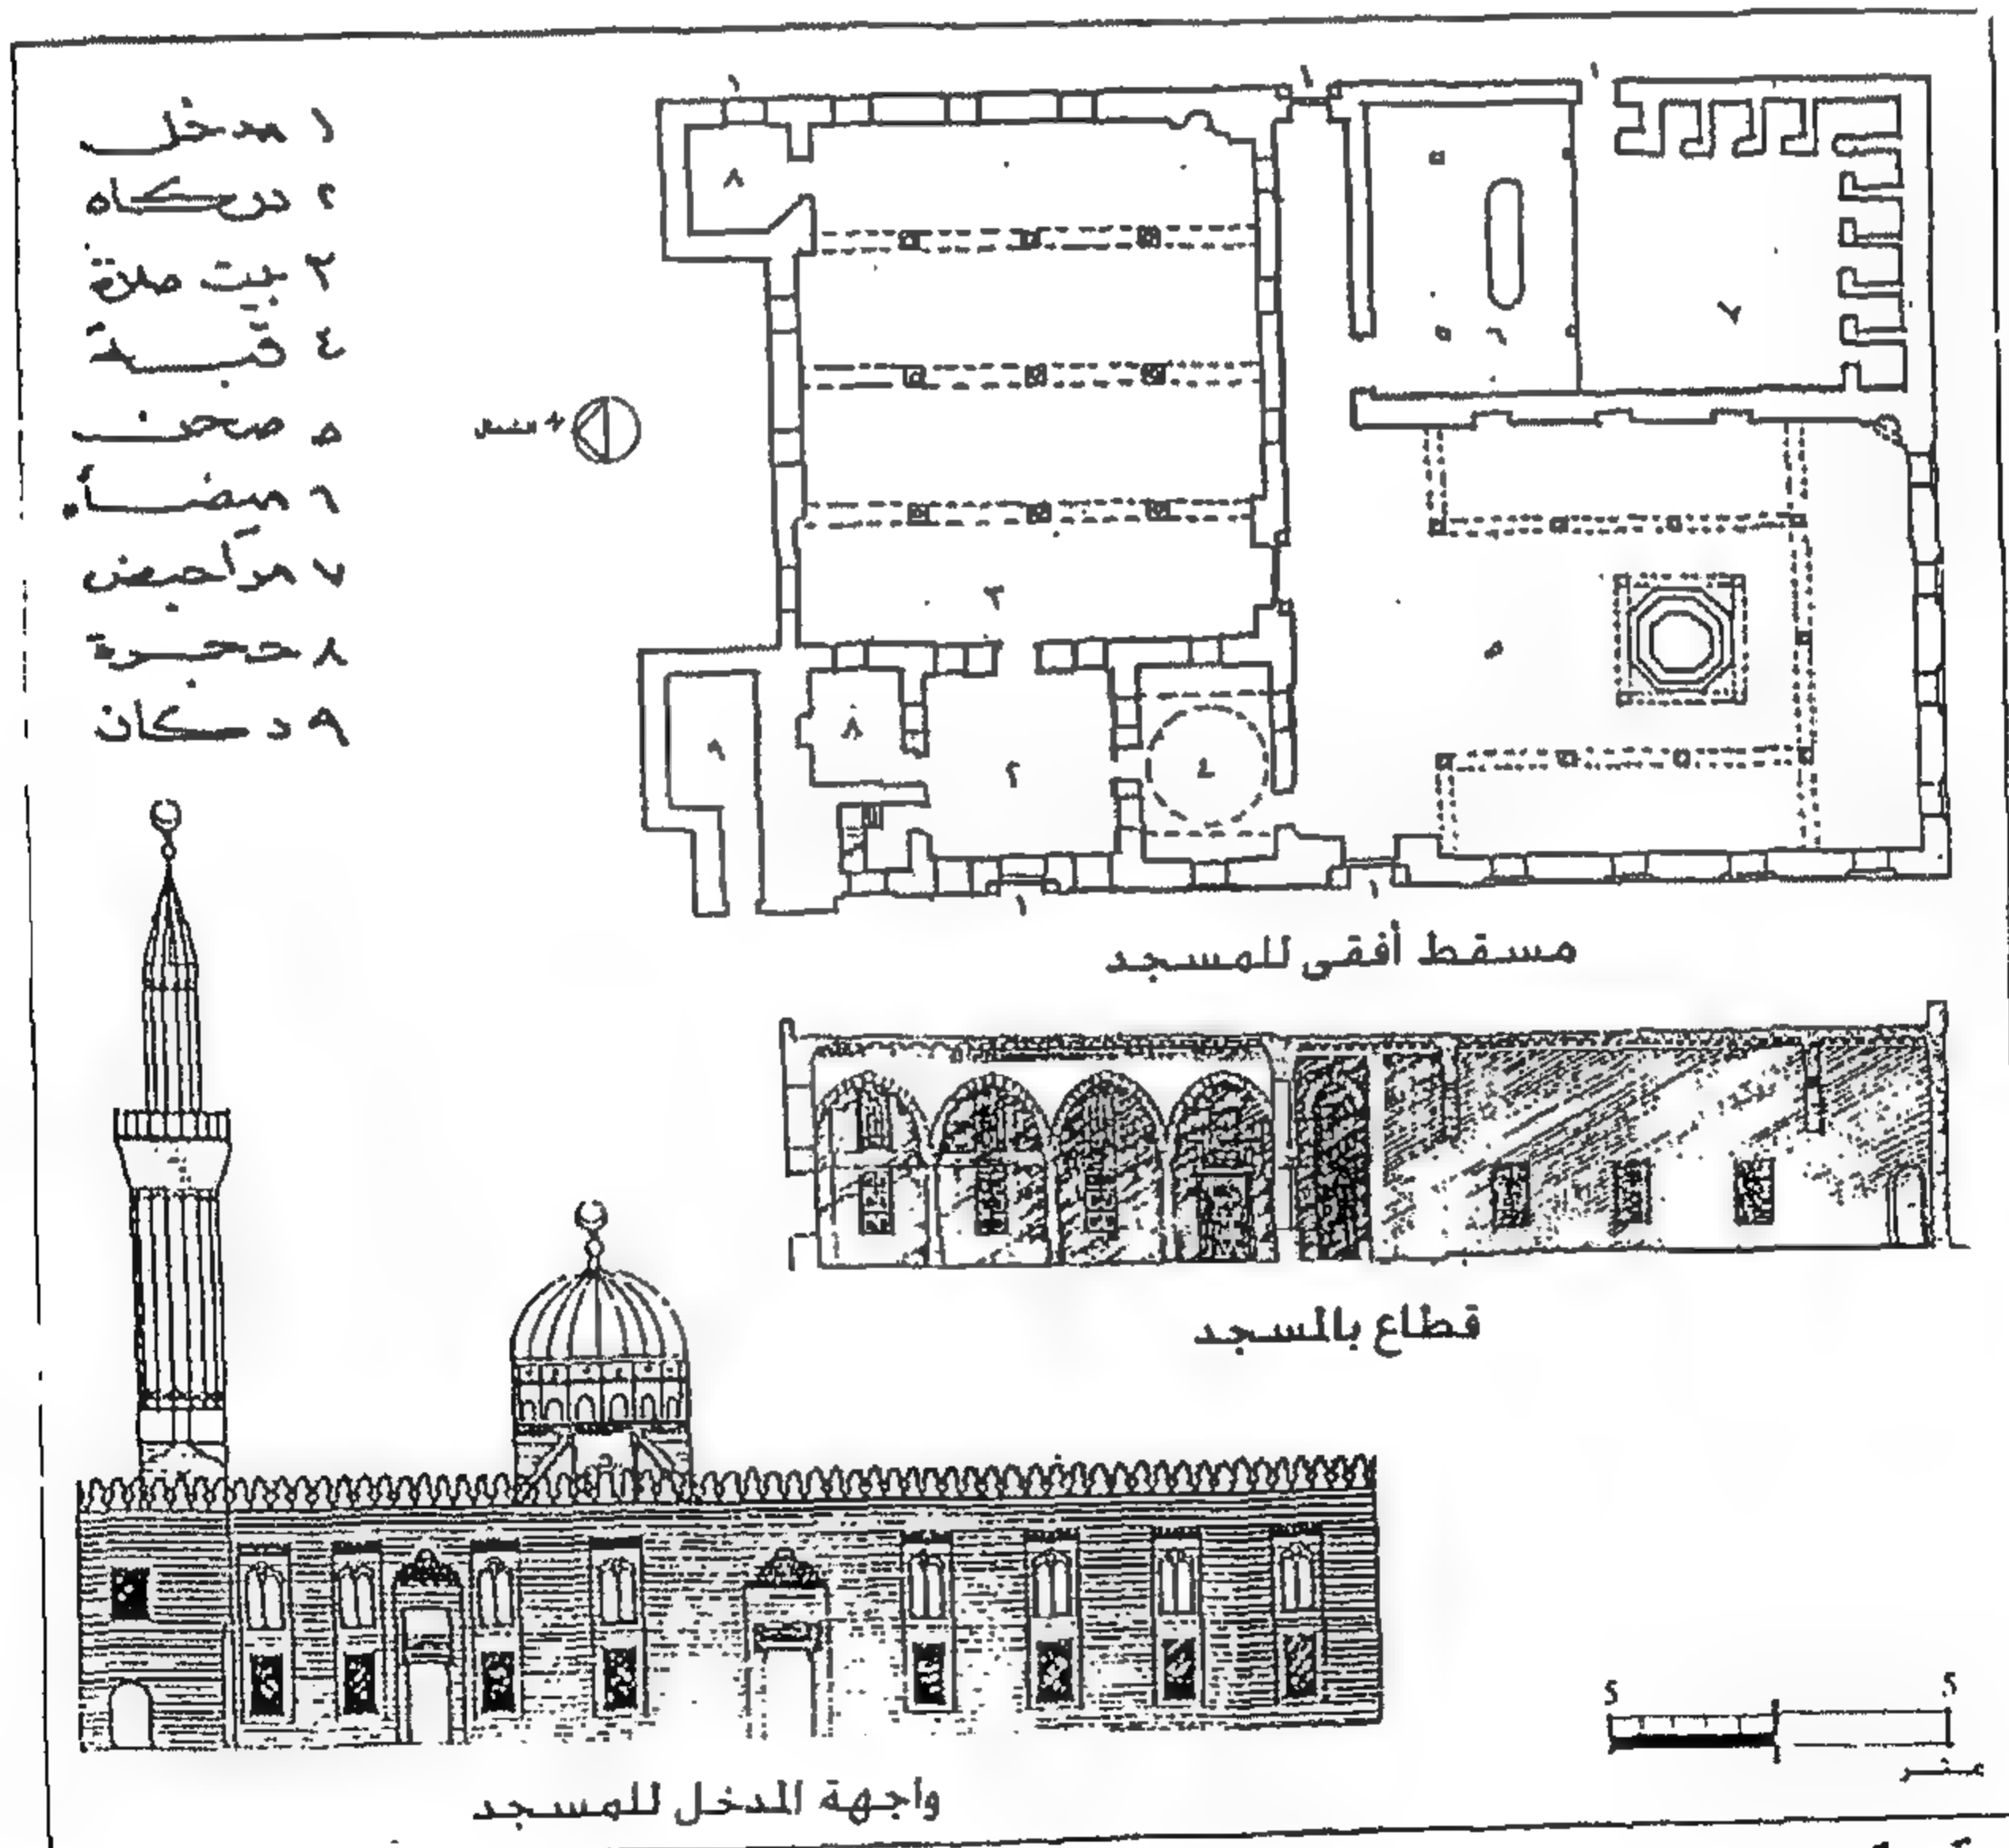 ١ مدخل
٢ دركاه
٣ بيت صلاة
٤ قبة
٥ صحن
٦ ميضأة
٧ مراحيض
٨ حجرة
٩ دكان
الشمال
١
١
١
٨
٦
٧
٣
٥
٩
٨
٢
٤
١
١
مسقط أفقى للمسجد
قطاع بالمسجد
واجهة المدخل للمسجد
5 5